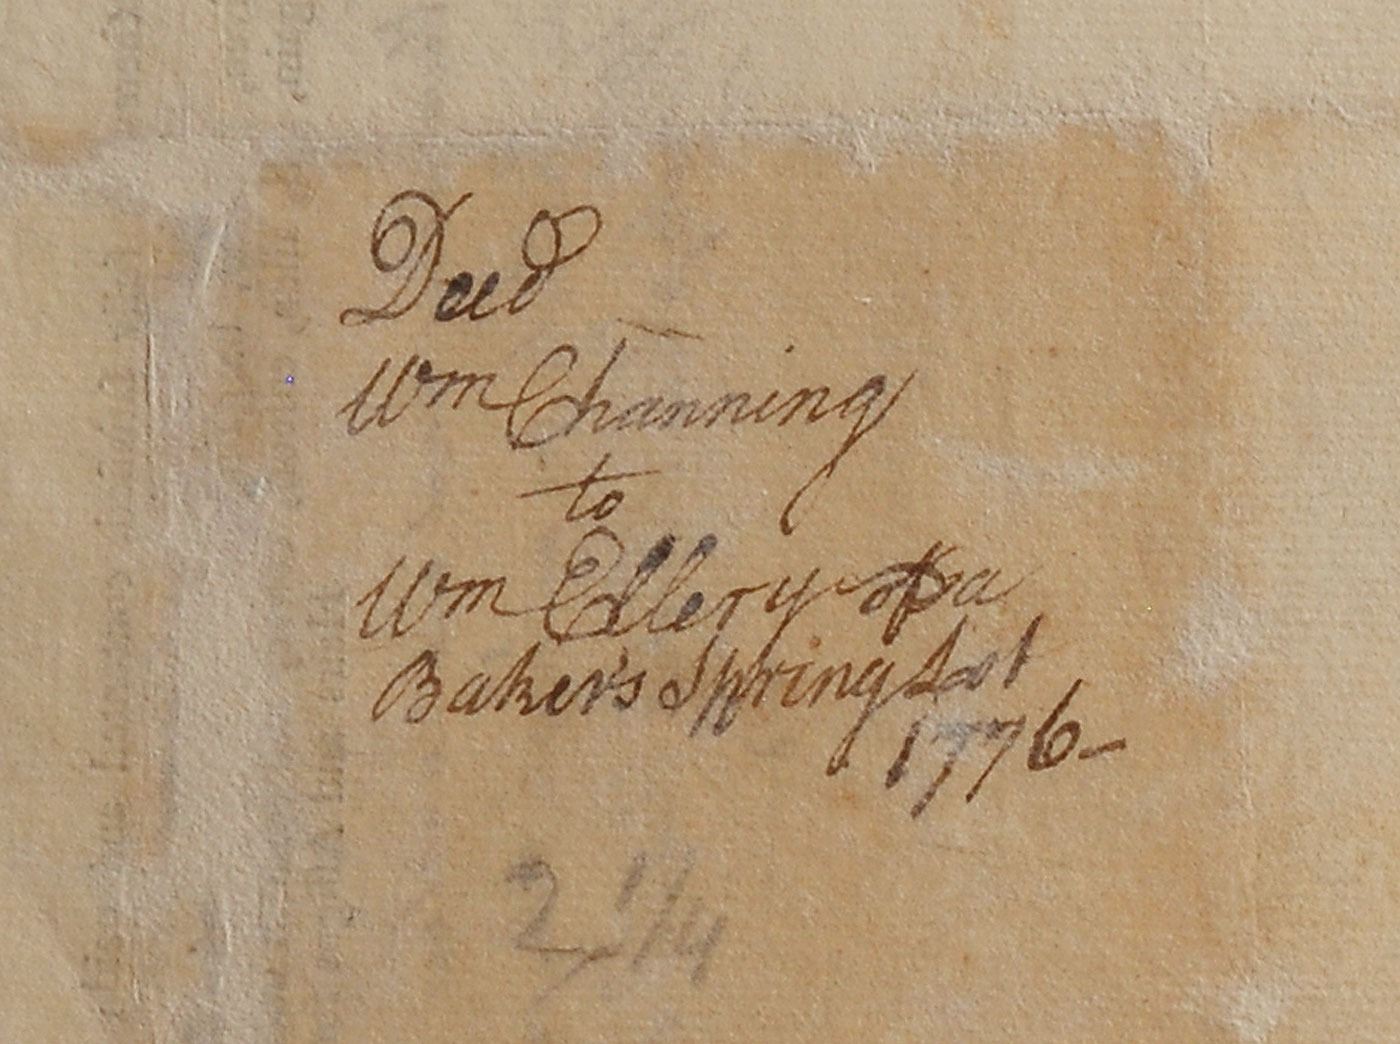 Deed
Wm Channing
to
Wm Ellery
Baker's Spring Lot
1776-
2 1/4